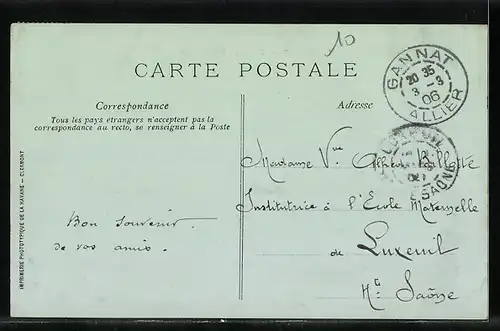 10
CARTE POSTALE
GANNAT
20 35
3 - 3
06
ALLIER
Correspondance
Tous les pays étrangers n'acceptent pas la
correspondance au recto, se renseigner à la Poste
Adresse
Madame Vve
Institutrice à l'École Maternelle
de Luxeuil
Hte Saône
Bon souvenir
de vos amis.
IMPRIMERIE PHOTOTYPIQUE DE LA HAVANE — CLERMONT